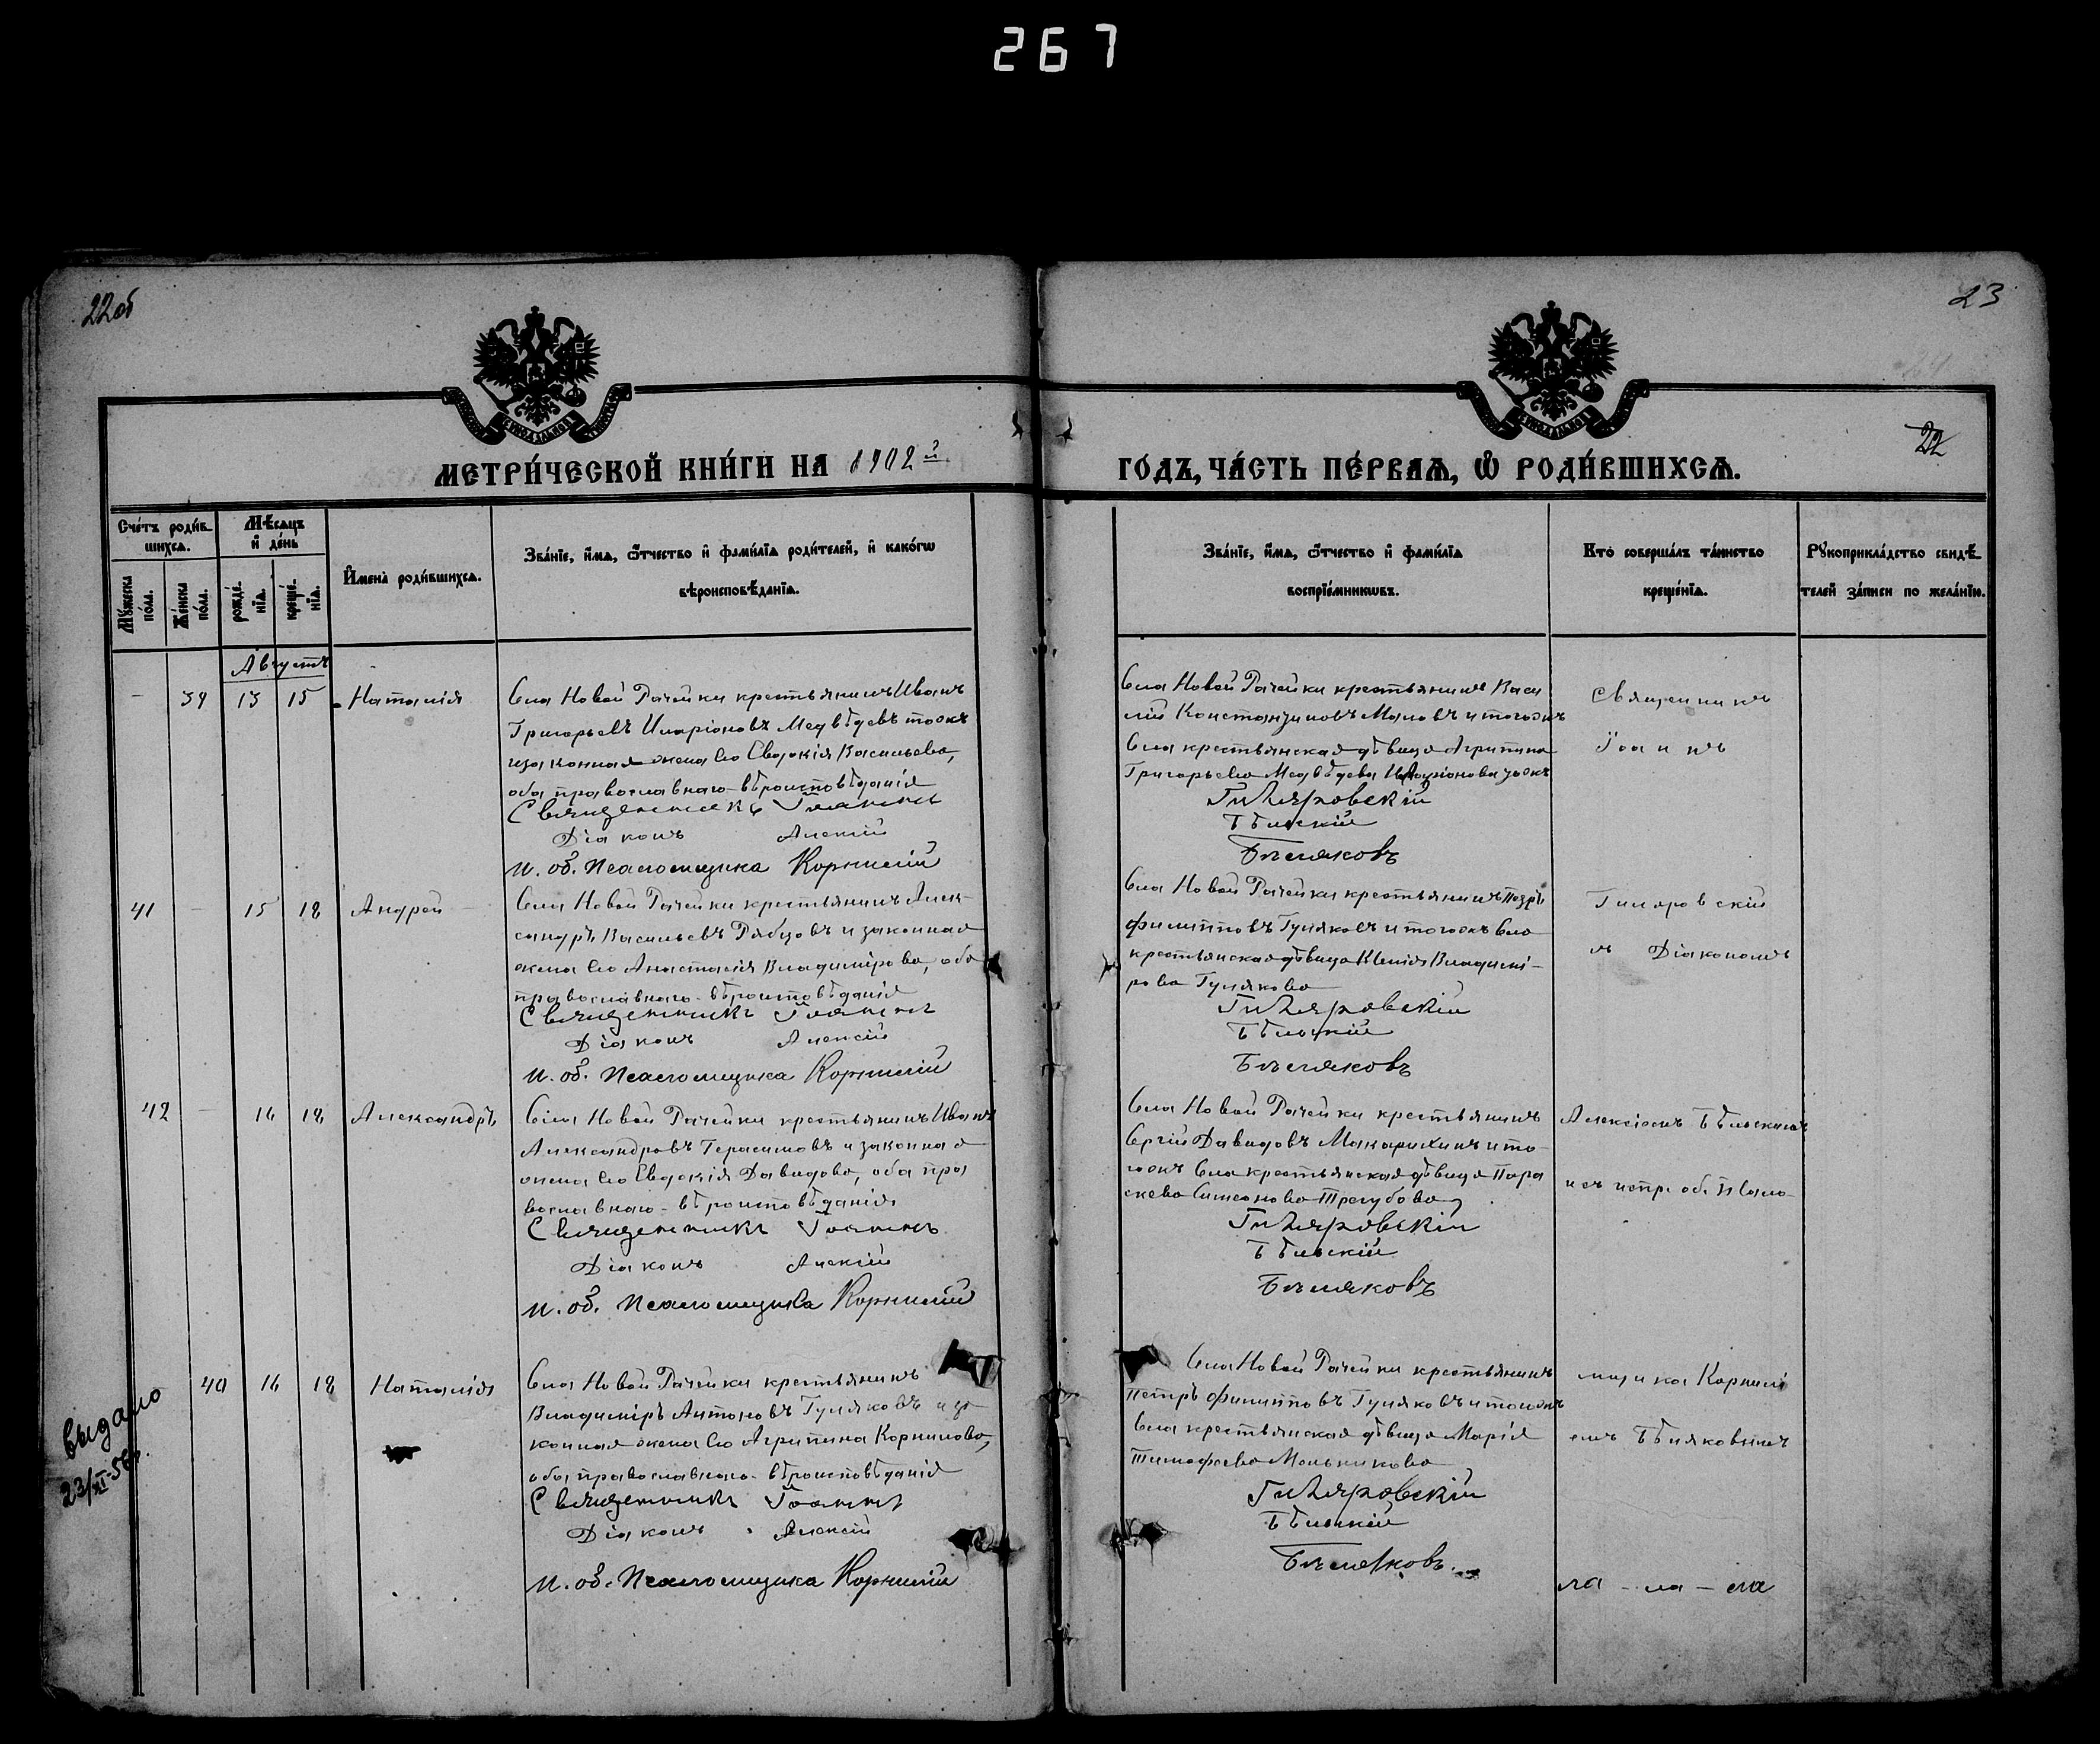 267
22об
23
22
МЕТРИ́ЧЕСКОЙ КНИ́ГИ НА 1902й
ГО́ДЪ, ЧА́СТЬ ПЕ́РВАѦ, Ѽ РОДИ́ВШИХСѦ.
Сче́тъ роди́в-
шихсѧ.
Мѣ́сѧцъ
и҆ де́нь
Мꙋ́жеска
по́ла.
Же́нска
по́ла.
рожде́-
нїѧ.
креще́-
нїѧ.
И҆мена̀ роди́вшихсѧ.
Зва́нїе, и҆́мѧ, ѻ҆́тчество и҆ фами́лїѧ роди́телей, и҆ како́гѡ
вѣроисповѣ́данїѧ.
Зва́нїе, и҆́мѧ, ѻ҆́тчество и҆ фами́лїѧ
воспрїе́мникѡвъ.
Кто̀ соверша́лъ та́инство
креще́нїѧ.
Рꙋкоприкла́дство свидѣ́-
телей за́писи по жела́нїю.
Августъ
- 39 13 15 Наталія
Села Новой Рачейки крестьянинъ Иванъ
Григорьевъ Иларіоновъ Медвѣдевъ тожъ
и законная жена его Евдокія Васильева,
оба православнаго вѣроисповѣданія
Священникъ Іоаннъ
Діаконъ Алексій
И. об. Псаломщика Корнилій
Села Новой Рачейки крестьянинъ Васи
лій Константиновъ Маловъ и тогожъ
Села крестьянская дѣвица Агрипина
Григорьева Медвѣдева Иларіонова тожъ
Гиляровскій
Бѣльскій
Бѣляковъ
Священникъ
Іоаннъ
41 - 15 18 Андрей
Села Новой Рачейки крестьянинъ Алек-
сандръ Васильевъ Рябцовъ и законная
жена его Анастасія Владимірова, оба
православнаго вѣроисповѣданія
Священникъ Іоаннъ
Діаконъ Алексій
И. об. Псаломщика Корнилій
Села Новой Рачейки крестьянинъ Петръ
Филипповъ Гуляковъ и тогожъ Села
крестьянская дѣвица Ксенія Владимі-
рова Гулякова
Гиляровскій
Бѣльскій
Бѣляковъ
Гиляровскій
съ Діакономъ
42 - 16 18 Александръ
Села Новой Рачейки крестьянинъ Иванъ
Александровъ Герасимовъ и законная
жена его Евдокія Давидова, оба пра
вославнаго вѣроисповѣданія
Священникъ Іоаннъ
Діаконъ Алексій
И. об. Псаломщика Корнилій
Села Новой Рачейки крестьянинъ
Сергій Давидовъ Макарихинъ и то-
гожъ Села крестьянская дѣвица Пара
скева Симеонова Трегубова
Гиляровскій
Бѣльскій
Бѣляковъ
Алексіемъ Бѣльскимъ
и съ испр. об. Псало-
40 16 18 Наталія
Села Новой Рачейки крестьянинъ
Владиміръ Антоновъ Гуляковъ и за-
конная жена его Агрипина Корнилова,
оба православнаго вѣроисповѣданія
Священникъ Іоаннъ
Діаконъ Алексій
И. об. Псаломщика Корнилій
Села Новой Рачейки крестьянинъ
Петръ Филипповъ Гуляковъ и тогожъ
Села крестьянская дѣвица Марія
Тимофеева Мельникова
Гиляровскій
Бѣльскій
Бѣляковъ
мщика Корнилі
емъ Бѣляковымъ
ла - ла - ела
выдано
23/XI-56г.